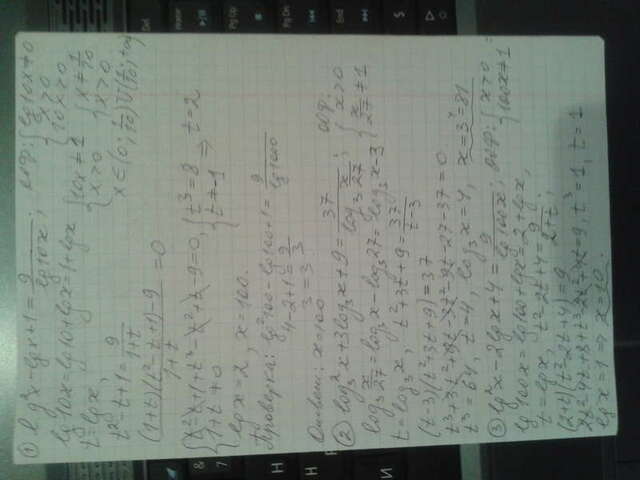 ① lg²x-lgx+1=9/lg10x; ОДЗ: {lg10x≠0
{x>0
{10x>0
lg10x=lg10+lgx=1+lgx {10x≠1 {x≠1/10
{x>0 {x>0
t=lgx, x∈(0;1/10)∪(1/10;+∞)
t²-t+1=9/(1+t)
((1+t)(t²-t+1)-9)/(1+t)=0
{t²-t+1+t³-t²+t-9=0, {t³=8
{1+t≠0 {t≠-1 ⇒ t=2
lgx=2, x=100.
Проверка: lg²100-lg100+1=9/lg1000
4-2+1=9/3
3=3
Ответ: x=100
② log₃²x+3log₃x+9=37/log₃(x/27); ОДЗ: {x>0
{x/27≠1
log₃x/27=log₃x-log₃27=log₃x-3
t=log₃x, t²+3t+9=37/(t-3)
(t-3)(t²+3t+9)=37
t³+3t²+9t-3t²-9t-27-37=0
t³=64, t=4, log₃x=4, x=3⁴=81
③ lg²x-2lgx+4=9/lg100x; ОДЗ: {x>0
{100x≠1
lg100x=lg100+lgx=2+lgx,
t=lgx, t²-2t+4=9/(2+t);
(2+t)(t²-2t+4)=9
2t²-4t+8+t³-2t²+4t=9, t³=1, t=1
lgx=1 ⇒ x=10.